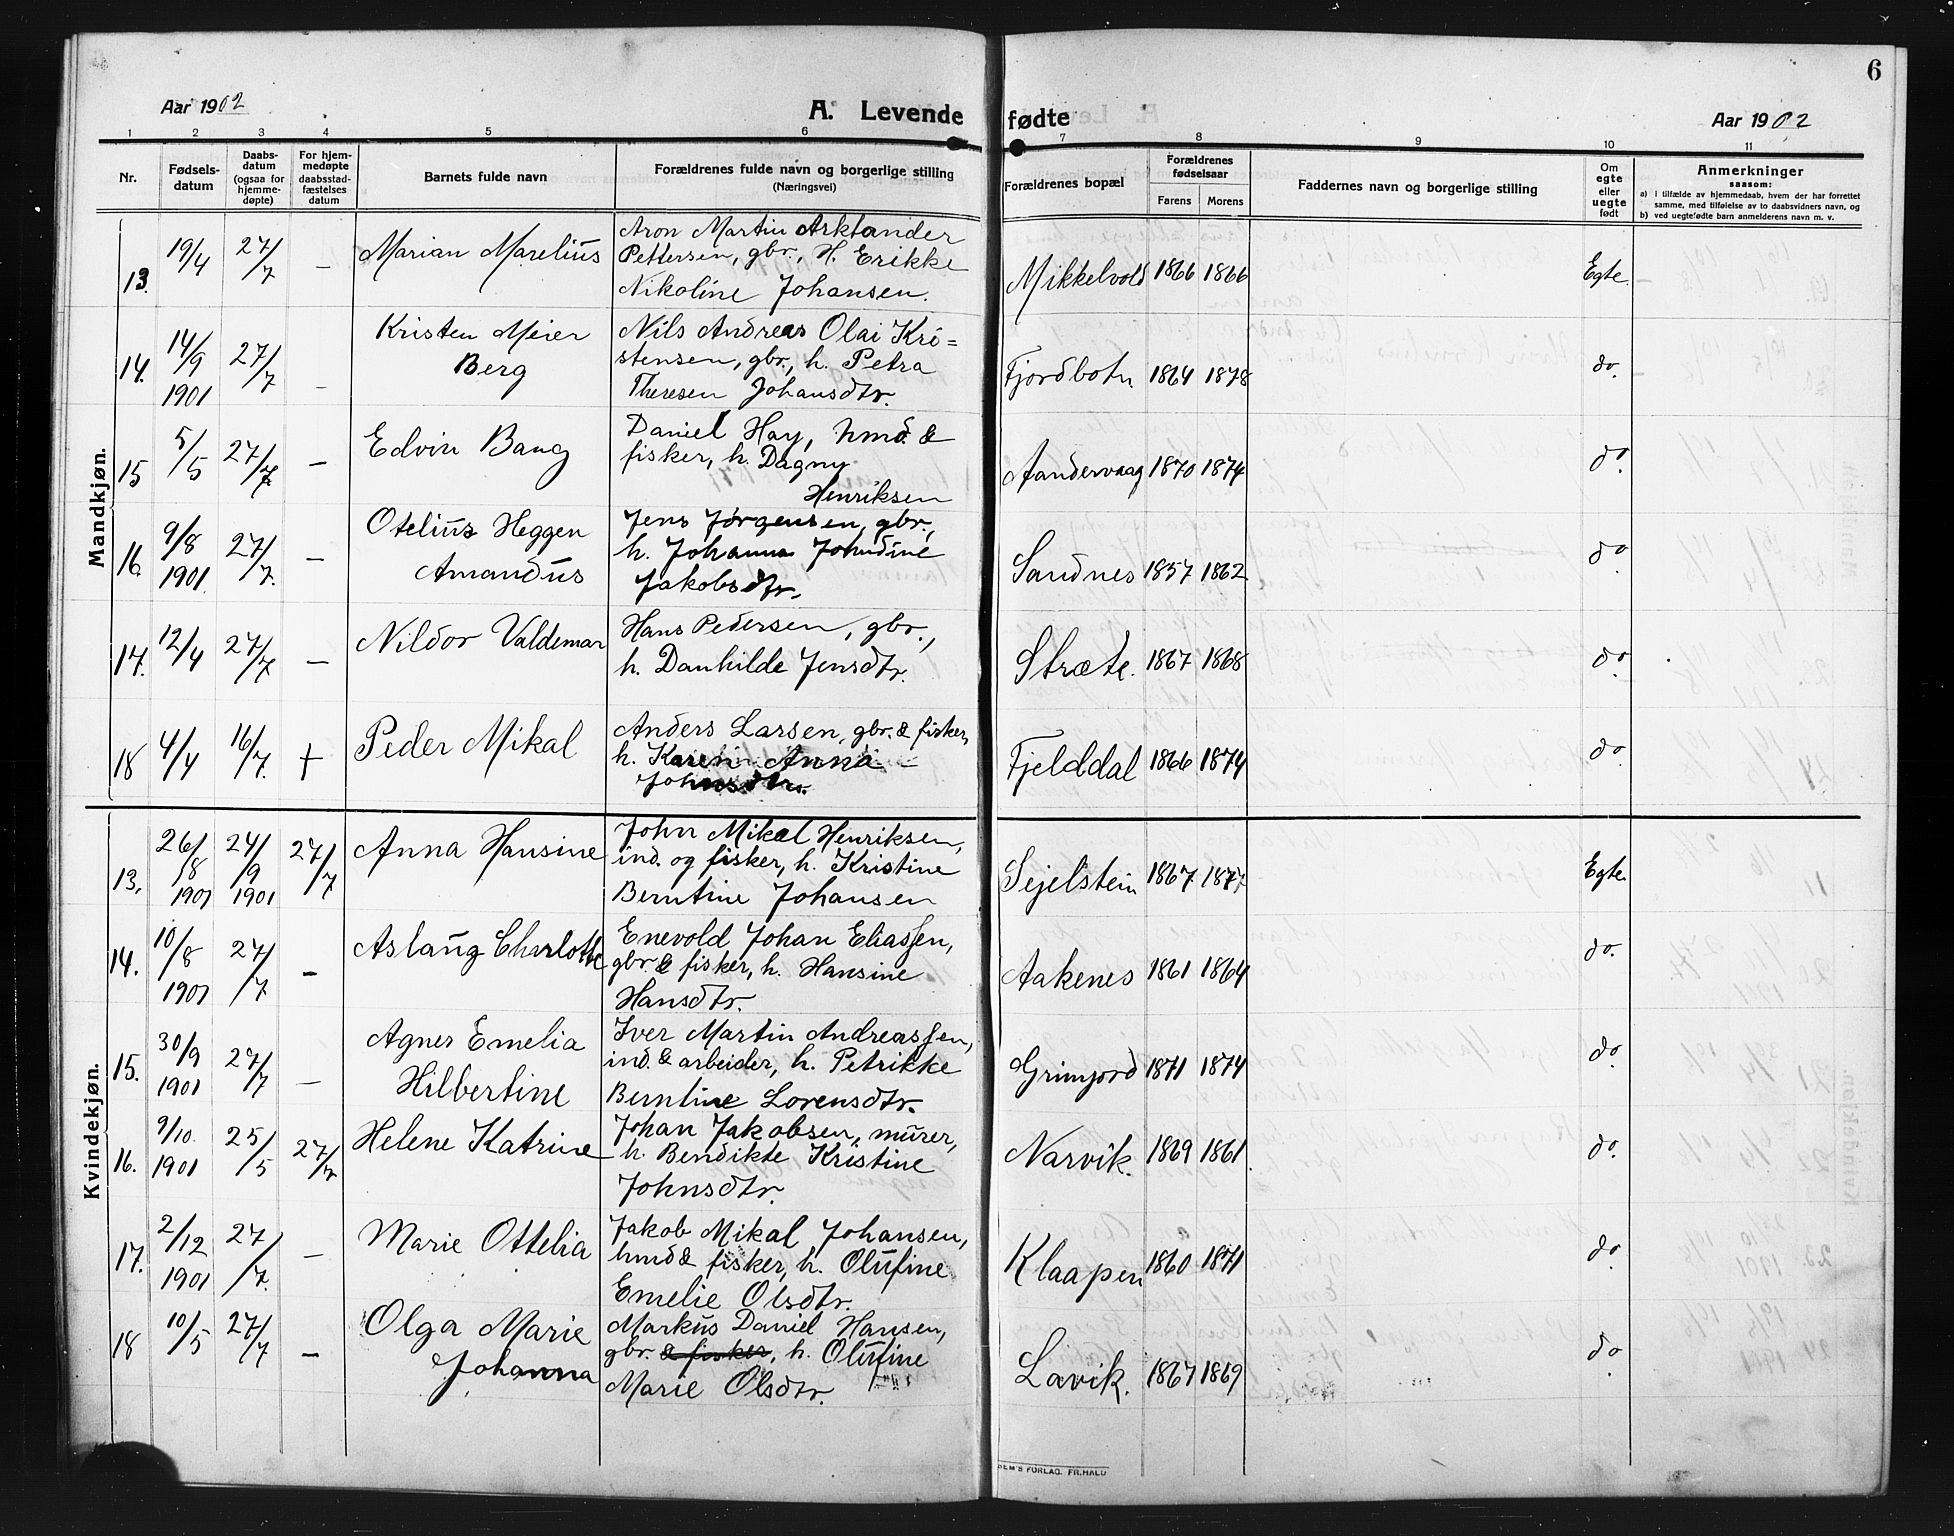 6
Aar 1902
A. Levende fødte
Aar 1902
1 2 3 4 5 6 7 8 9 10 11
Nr.
Fødsels-
datum
Daabs-
datum
(ogsaa for
hjemme-
døpte)
For hjem-
medøpte
daabsstad-
fæstelses
datum
Barnets fulde navn
Forældrenes fulde navn og borgerlige stilling
(Næringsvei)
Forældrenes bopæl
Forældrenes
fødselsaar
Farens Morens
Faddernes navn og borgerlige stilling
Om
egte
eller
uegte
født
Anmerkninger
saasom:
a) i tilfælde av hjemmedaab, hvem der har forrettet
samme, med tilføielse av to daabsvidners navn, og
b) ved uegtefødte barn anmelderens navn m. v.
Mandkjøn.
13. 19/4 27/7 – Marian Marelius
Aron Martin Arktander
Pettersen, gbr., H. Erikke
Nikoline Johansen.
Mikkelvold 1866 1866 Egte
14. 14/9 1901 27/7 – Kristen Meier
Berg
Nils Andreas Olai Kri=
stensen, gbr., h. Petra
Theresen Johansdtr.
Fjordbotn 1864 1878 do.
15 5/5 27/7 – Edvin Bang
Daniel Hay, hmd. &
fisker, h. Dagny
Henriksen
Aandervaag 1870 1874 do.
16. 9/8 1901 27/7. – Otelius Heggen
Amandus
Jens Jørgensen, gbr.,
h. Johanna Johndine
Jakobsdtr.
Sandnes 1857 1862 do.
17. 12/4 27/7 – Nildor Valdemar
Hans Pedersen, gbr.,
h. Danhilde Jensdtr.
Stræte. 1867 1868 do.
18 4/4 16/7. + Peder Mikal
Anders Larsen, gbr. & fisker,
h. Karen Anna
Johnsdtr.
Fjelddal 1866 1874 do.
Kvindekjøn.
13. 26/8 1901 24/9 1901 27/7 Anna Hansine
John Mikal Henriksen,
ind. og fisker, h. Kristine
Berntine Johansen
Sejelstein 1867 1877 Egte
14. 10/8 1901 27/7 – Aslaug Charlotte
Enevold Johan Eliassen,
gbr. & fisker, h. Hansine
Hansdtr.
Aakenes 1861 1864 do.
15. 30/9 1901 27/7 – Agnes Emelia
Hilbertine
Iver Martin Andreassen,
ind. & arbeider, h. Petrikke
Berntine Lorensdtr.
Grimjord 1871 1874 do.
16. 9/10. 1901 25/5 27/7 Helene Katrine
Johan Jakobsen, murer,
h. Bendikte Kristine
Johnsdtr.
Narvik. 1869 1861 do.
17. 2/12 1901 27/7. – Marie Ottelia
Jakob Mikal Johansen,
hmd & fisker, h. Olufine
Emelie Olsdtr.
Klaapen 1860 1871 do.
18 10/5 27/7 – Olga Marie
Johanna
Markus Daniel Hansen,
gbr. & fisker, h. Olufine
Marie Olsdtr.
Lavik. 1867 1869 do.
SEM'S FORLAG. FR. HALD